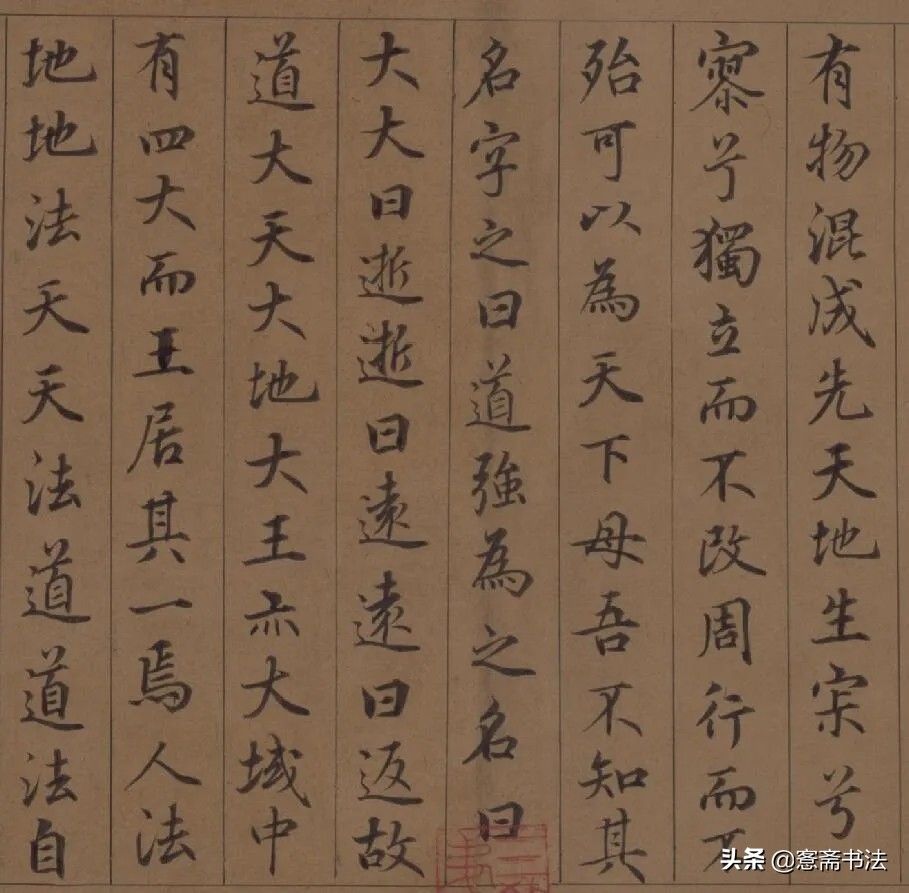 有物混成先天地生寂兮
寥兮獨立而不改周行而不
殆可以為天下母吾不知其
名字之曰道強為之名曰
大大曰逝逝曰遠遠曰返故
道大天大地大王亦大域中
有四大而王居其一焉人法
地地法天天法道道法自
头条 @愙斋书法